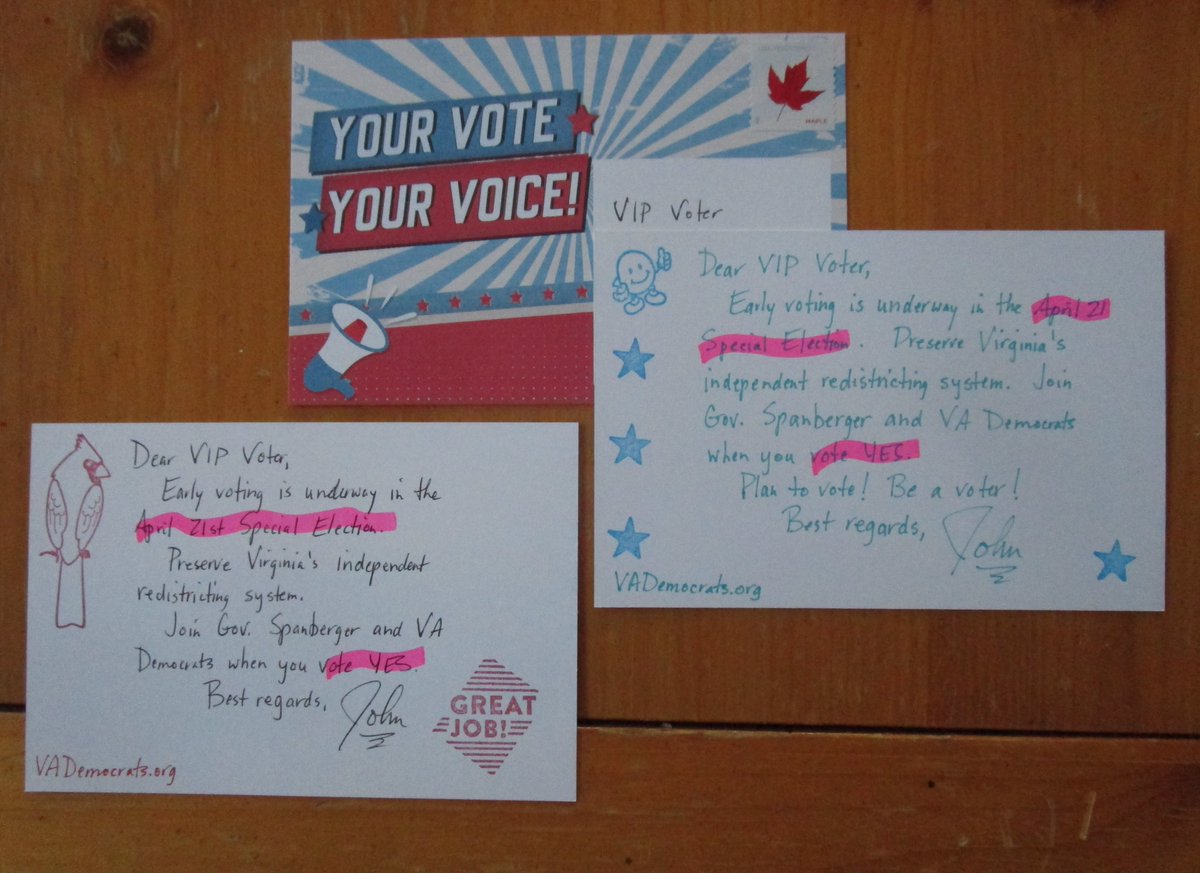 YOUR VOTE
YOUR VOICE!
MAPLE
VIP Voter
Dear VIP Voter,
Early voting is underway in the April 21
Special Election. Preserve Virginia's
independent redistricting system. Join
Gov. Spanberger and VA Democrats
when you vote YES.
Plan to vote! Be a voter!
Best regards,
John
VADemocrats.org
Dear VIP Voter,
Early voting is underway in the
April 21st Special Election.
Preserve Virginia's independent
redistricting system.
Join Gov. Spanberger and VA
Democrats when you vote YES.
Best regards,
John
GREAT
JOB!
VADemocrats.org